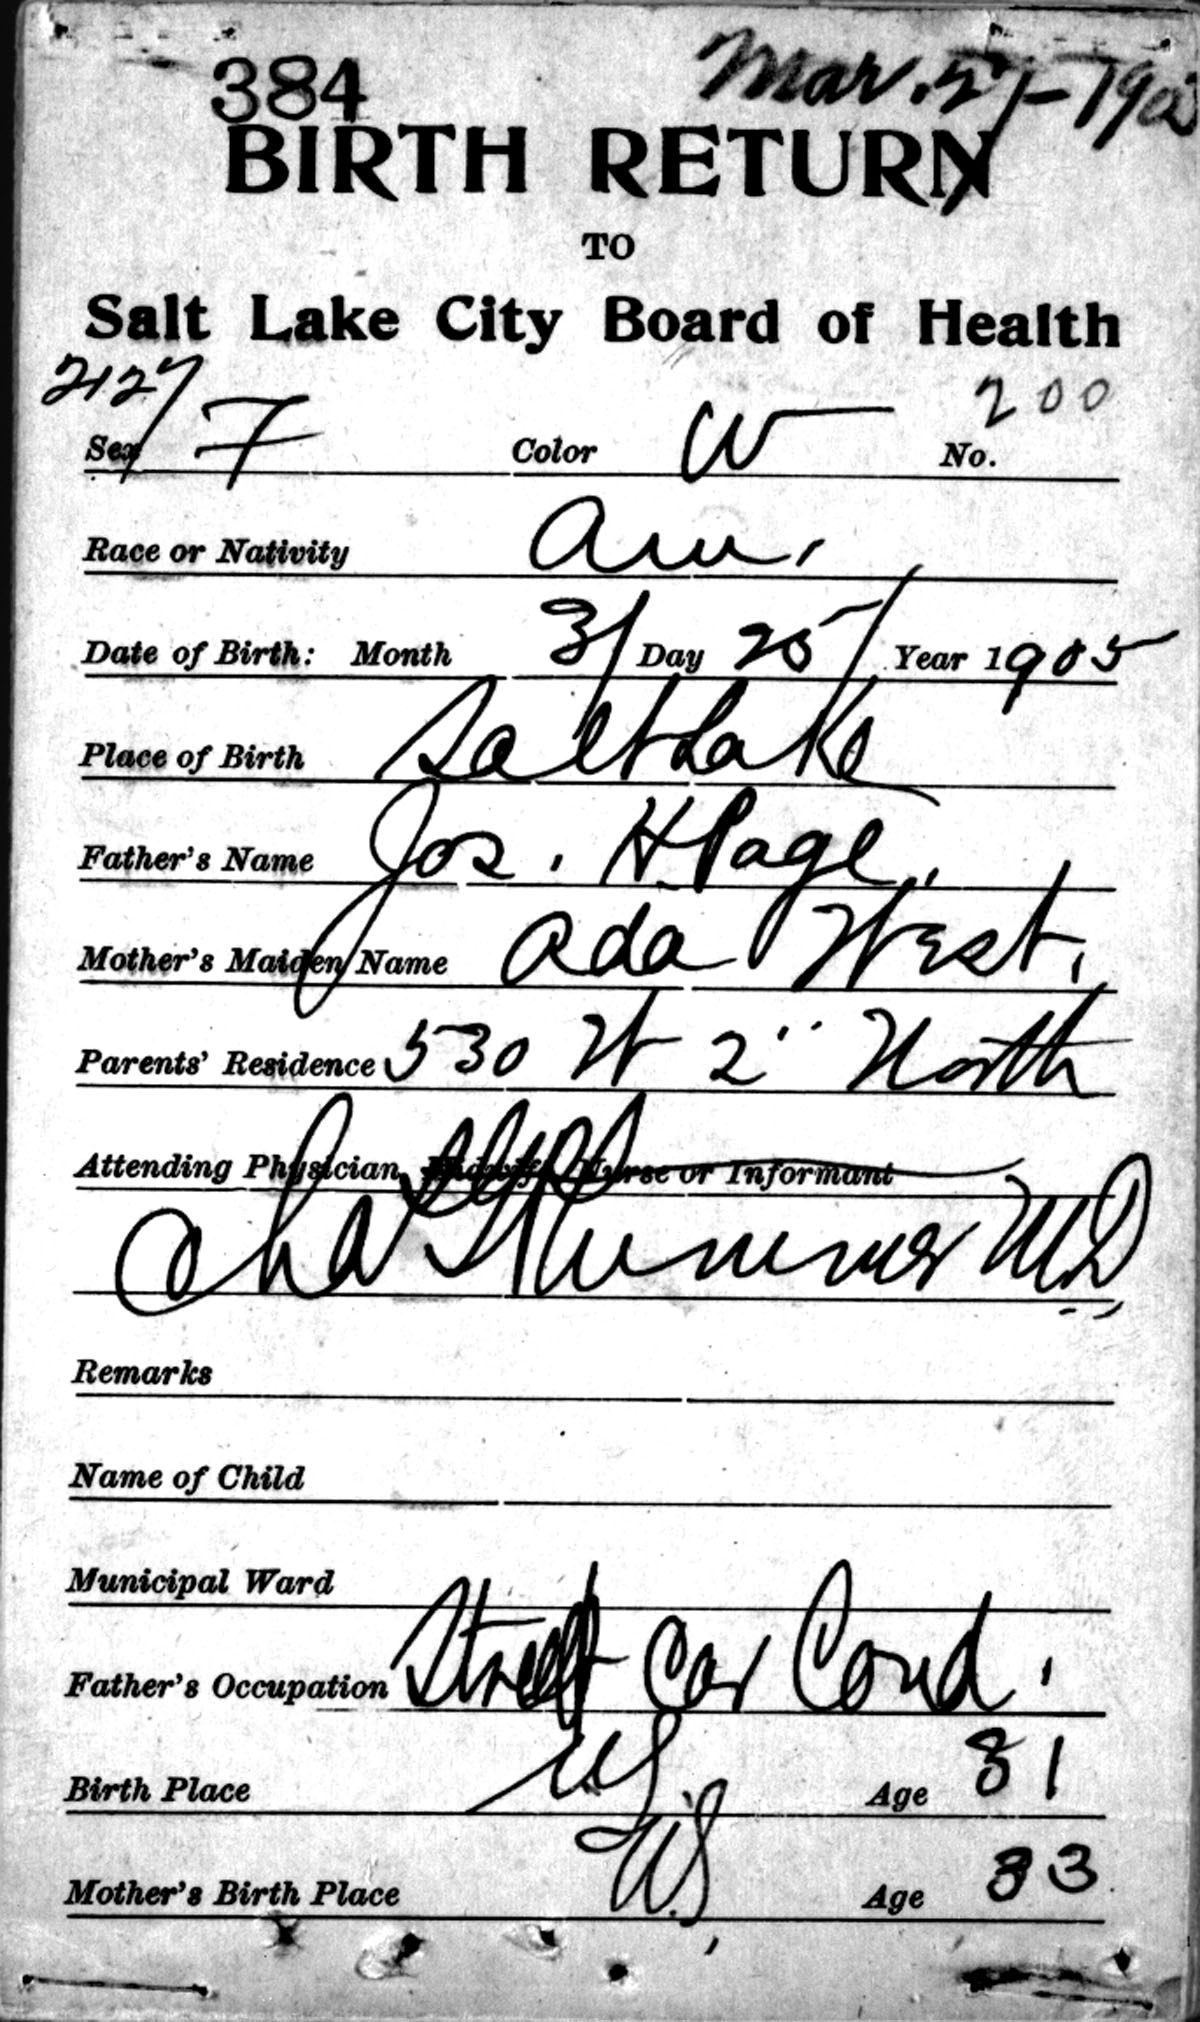 384 Mar. 27-190
BIRTH RETURN
TO
Salt Lake City Board of Health
2127 200
Sex F Color W No.
Race or Nativity Am.
Date of Birth: Month 3/ Day 25/ Year 1905
Place of Birth Salt Lake
Father's Name Jos. H Page.
Mother's Maiden Name Ada West.
Parents' Residence 530 W 2" North
Attending Physician, Midwife, Nurse or Informant
Chas MD
Remarks
Name of Child
Municipal Ward
Father's Occupation Street Car Cond.
Birth Place US. Age 31
Mother's Birth Place U.S Age 33